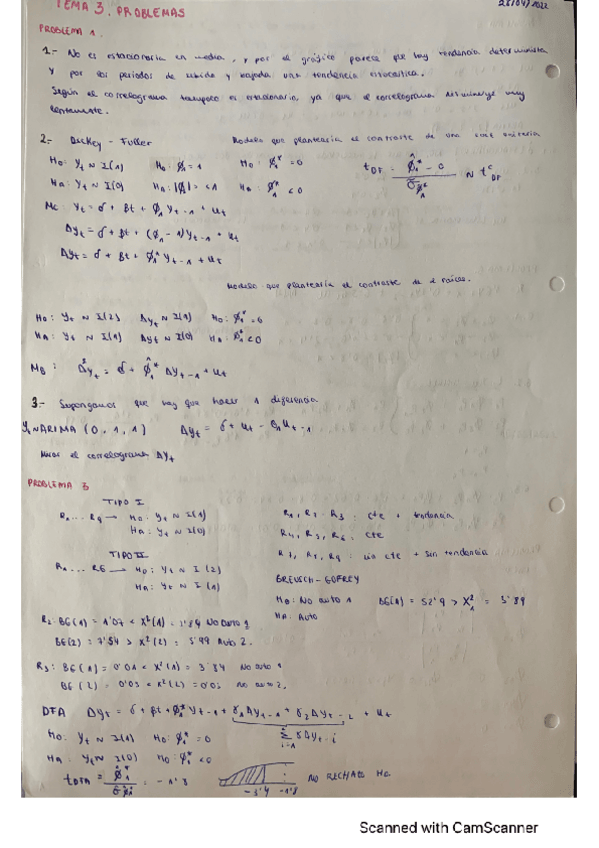 TEMA 3. PROBLEMAS
28/04/2022
PROBLEMA 1.
1.- No es estacionaria en media, y por el gráfico parece que hay tendencia determinista
y por los periodos de subida y bajada una tendencia estocástica.
Según el correlograma tampoco es estacionaria, ya que el correlograma disminuye muy
lentamente.
2.- Dickey - Fuller
Modelo que plantearía el contraste de una raíz unitaria
H0: Yt ~ I(1)   H0: ϕ1 = 1   H0: ϕ1* = 0
HA: Yt ~ I(0)   HA: |ϕ1| < 1   HA: ϕ1* < 0
tDF = (ϕ̂1* - 0) / σ̂ϕ̂1* ~ tcDF
Mc: Yt = δ + βt + ϕ1 Yt-1 + ut
ΔYt = δ + βt + (ϕ1 - 1)Yt-1 + ut
ΔYt = δ + βt + ϕ1* Yt-1 + ut
Modelo que plantearía el contraste de 2 raíces.
H0: Yt ~ I(2)   ΔYt ~ I(1)   H0: ϕ1* = 0
HA: Yt ~ I(1)   ΔYt ~ I(0)   HA: ϕ1* < 0
MB: Δ²Yt = δ + ϕ1* ΔYt-1 + ut
3.- Supongamos que hay que hacer 1 diferencia
Yt ~ ARIMA (0,1,1)   ΔYt = δ + ut - θ1 ut-1
el correlograma ΔYt
PROBLEMA 3
TIPO I
R1 ... R9 → H0: Yt ~ I(1)
HA: Yt ~ I(0)
TIPO II
R1 ... R6 → H0: Yt ~ I(2)
HA: Yt ~ I(1)
R1, R2, R3: cte + tendencia
R4, R5, R6: cte
R7, R8, R9: sin cte + sin tendencia
BREUSCH - GOFREY
H0: No auto 1   BG(1) = 52'9 > X²1 = 3'84
HA: Auto
R2: BG(1) = 1'07 < X²(1) = 3'84 No auto 1
BG(2) = 7'54 > X²(2) = 5'99 Auto 2.
R3: BG(1) = 0'01 < X²(1) = 3'84 No auto 1
BG(2) = 0'03 < X²(2) = 0'05 no auto 2.
DFA ΔYt = δ + βt + ϕ1* Yt-1 + γ1ΔYt-1 + γ2ΔYt-2 + ut
Σ γΔYt-i
i=1
H0: Yt ~ I(1)   H0: ϕ1* = 0
HA: Yt ~ I(0)   H0: ϕ1* < 0
tDFA = ϕ̂1* / σ̂ϕ̂1* = -1'8
-3'4 -1'8
NO RECHAZO H0.
Scanned with CamScanner